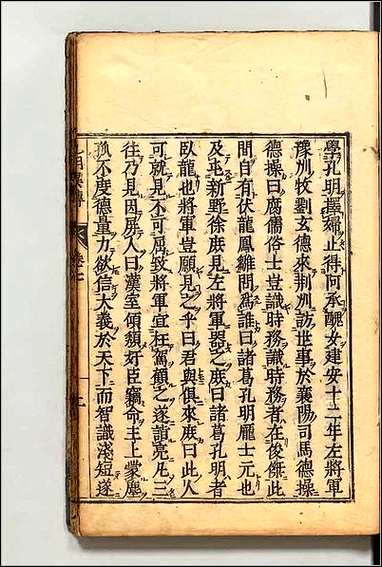 學孔明擇婦止得阿承醜女建安十二年左將軍
豫州牧劉玄德來荆州訪世事於襄陽司馬德操
德操曰腐儒俗士豈識時務識時務者在俊傑此
間自有伏龍鳳雛問爲誰曰諸葛孔明龐士元也
及屯新野徐庶見左將軍器之庶曰諸葛孔明者
臥龍也將軍豈願見之乎曰君與俱來庶曰此人
可就見不可屈致將軍宜枉駕顧之遂詣亮凡三
往乃見因屏人曰漢室傾頹奸臣竊命主上蒙塵
孤不度德量力欲信大義於天下而智識淺短遂